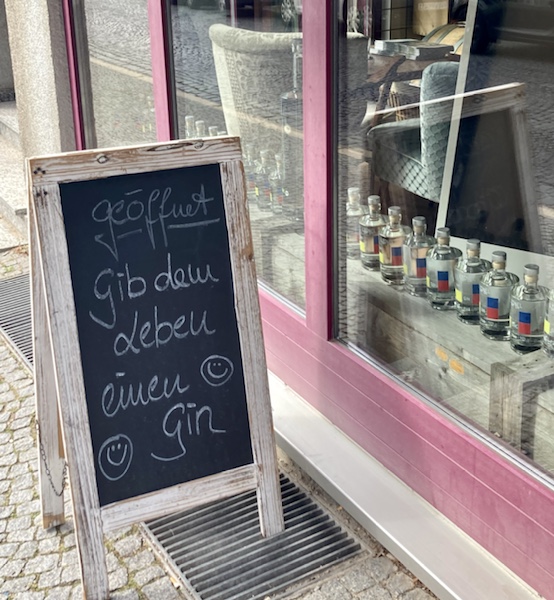 geöffnet
Gib dem
Leben
einen
Gin